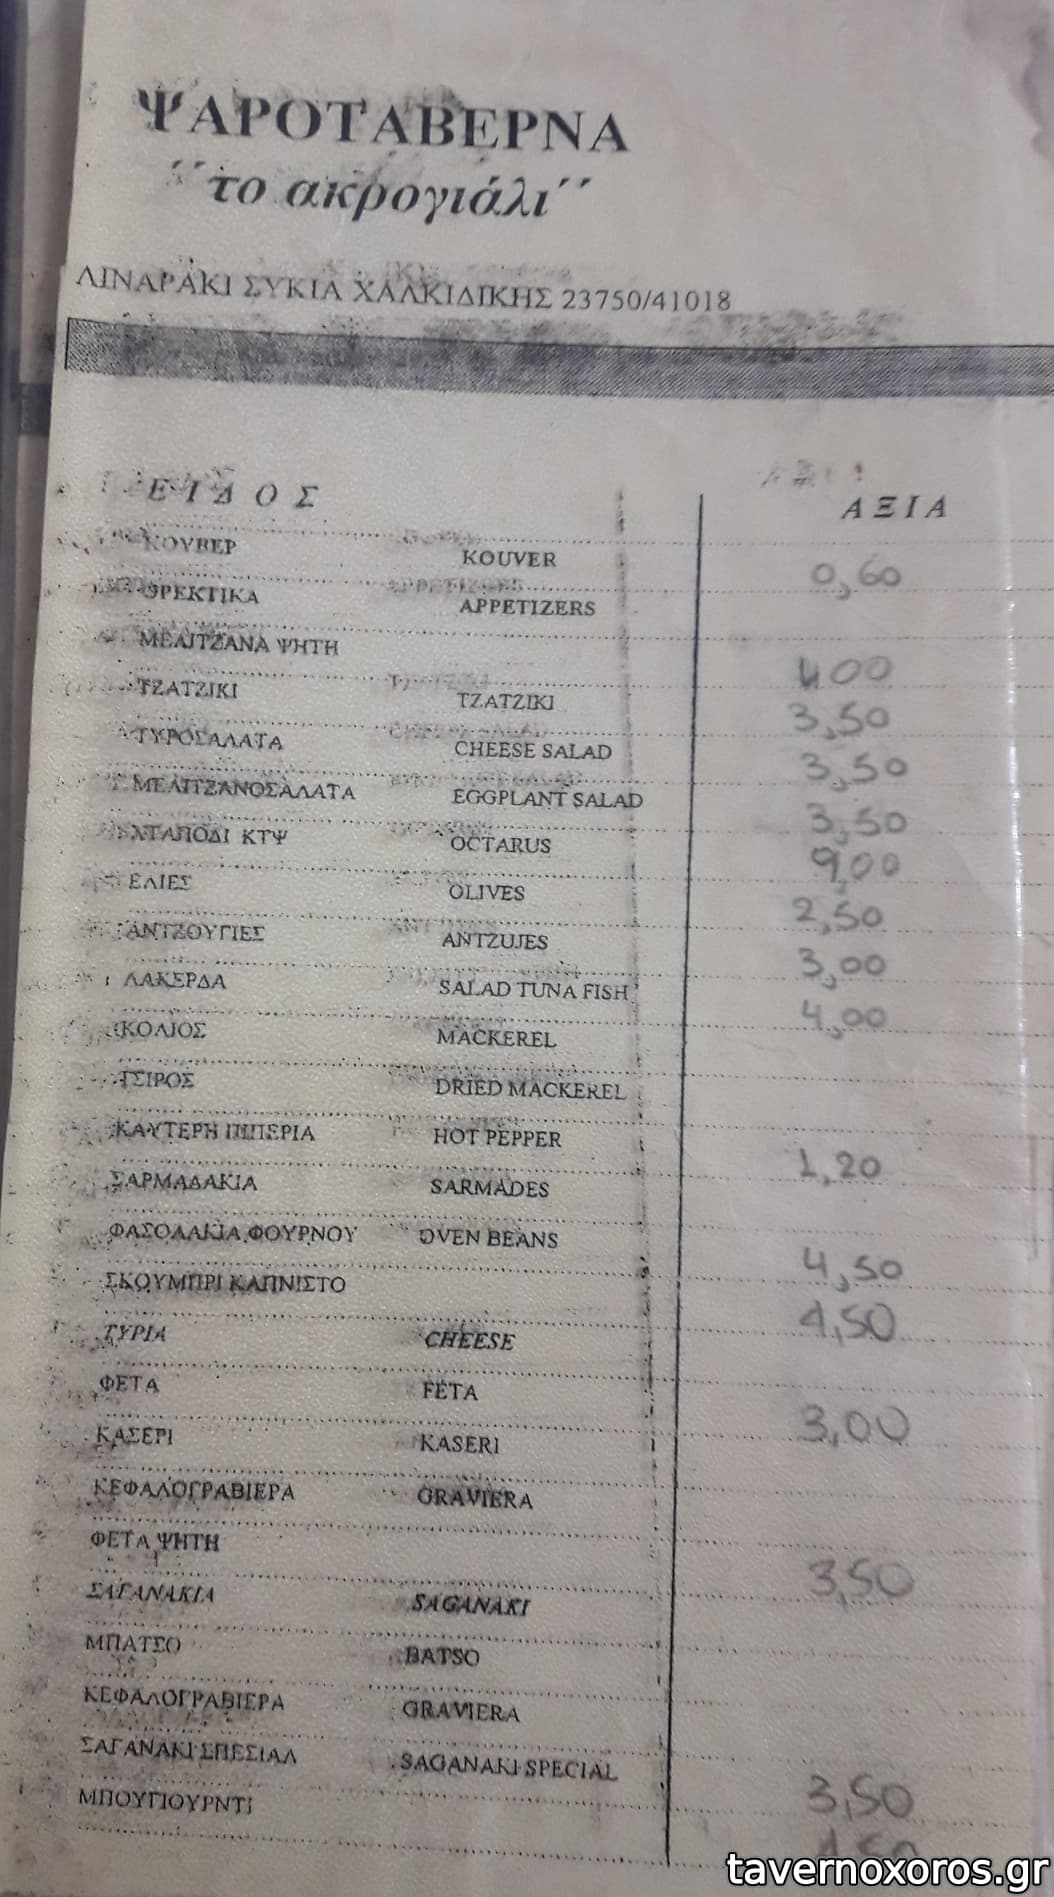 ΨΑΡΟΤΑΒΕΡΝΑ
΄΄το ακρογιάλι΄΄
ΛΙΝΑΡΑΚΙ ΣΥΚΙΑ ΧΑΛΚΙΔΙΚΗΣ 23750/41018
ΕΙΔΟΣ ΑΞΙΑ
ΚΟΥΒΕΡ KOUVER 0,60
ΟΡΕΚΤΙΚΑ APPETIZERS
ΜΕΛΙΤΖΑΝΑ ΨΗΤΗ 4,00
ΤΖΑΤΖΙΚΙ TZATZIKI 3,50
ΤΥΡΟΣΑΛΑΤΑ CHEESE SALAD 3,50
ΜΕΛΙΤΖΑΝΟΣΑΛΑΤΑ EGGPLANT SALAD 3,50
ΧΤΑΠΟΔΙ ΚΤΨ OCTARUS 9,00
ΕΛΙΕΣ OLIVES 2,50
ΑΝΤΖΟΥΓΙΕΣ ANTZUJES 3,00
ΛΑΚΕΡΔΑ SALAD TUNA FISH 4,00
ΚΟΛΙΟΣ MACKEREL
ΤΣΙΡΟΣ DRIED MACKEREL
ΚΑΥΤΕΡΗ ΠΙΠΕΡΙΑ HOT PEPPER 1,20
ΣΑΡΜΑΔΑΚΙΑ SARMADES
ΦΑΣΟΛΑΚΙΑ ΦΟΥΡΝΟΥ OVEN BEANS 4,50
ΣΚΟΥΜΠΡΙ ΚΑΠΝΙΣΤΟ 4,50
ΤΥΡΙΑ CHEESE
ΦΕΤΑ FETA 3,00
ΚΑΣΕΡΙ KASERI
ΚΕΦΑΛΟΓΡΑΒΙΕΡΑ GRAVIERA
ΦΕΤΑ ΨΗΤΗ 3,50
ΣΑΓΑΝΑΚΙΑ SAGANAKI
ΜΠΑΤΣΟ BATSO
ΚΕΦΑΛΟΓΡΑΒΙΕΡΑ GRAVIERA
ΣΑΓΑΝΑΚΙ ΣΠΕΣΙΑΛ SAGANAKI SPECIAL 3,50
ΜΠΟΥΓΙΟΥΡΝΤΙ
tavernoxoros.gr